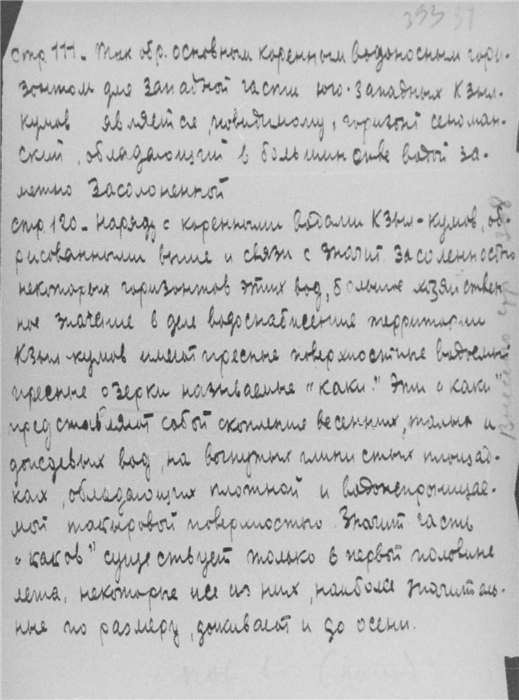 333 31
стр 111. Так обр. основным коренным водоносным гори-
зонтом для западной части юго-западных Кзыл-
кумов является, повидимому, горизонт сеноман-
ский, обладающий в большинстве водой за-
метно засолоненной
стр. 120. Наряду с коренными водами Кзыл-кумов, об-
рисованными выше и связи с значит засоленностью
некоторых горизонтов этих вод, большое хозяйствен-
ное значение в деле водоснабжения территории
Кзыл-кумов имеют пресные поверхностные водоемы
пресные озерки называемые "каки." Эти "каки"
представляют собой скопление весенних, талых и
дождевых вод, на вогнутых глинистых площад-
ках, обладающих плотной и водонепроницае-
мой такыровой поверхностью. Значит часть
"каков" существует только в первой половине
лета, некоторые же из них, наиболее значитель-
ные по размеру, доживают и до осени.